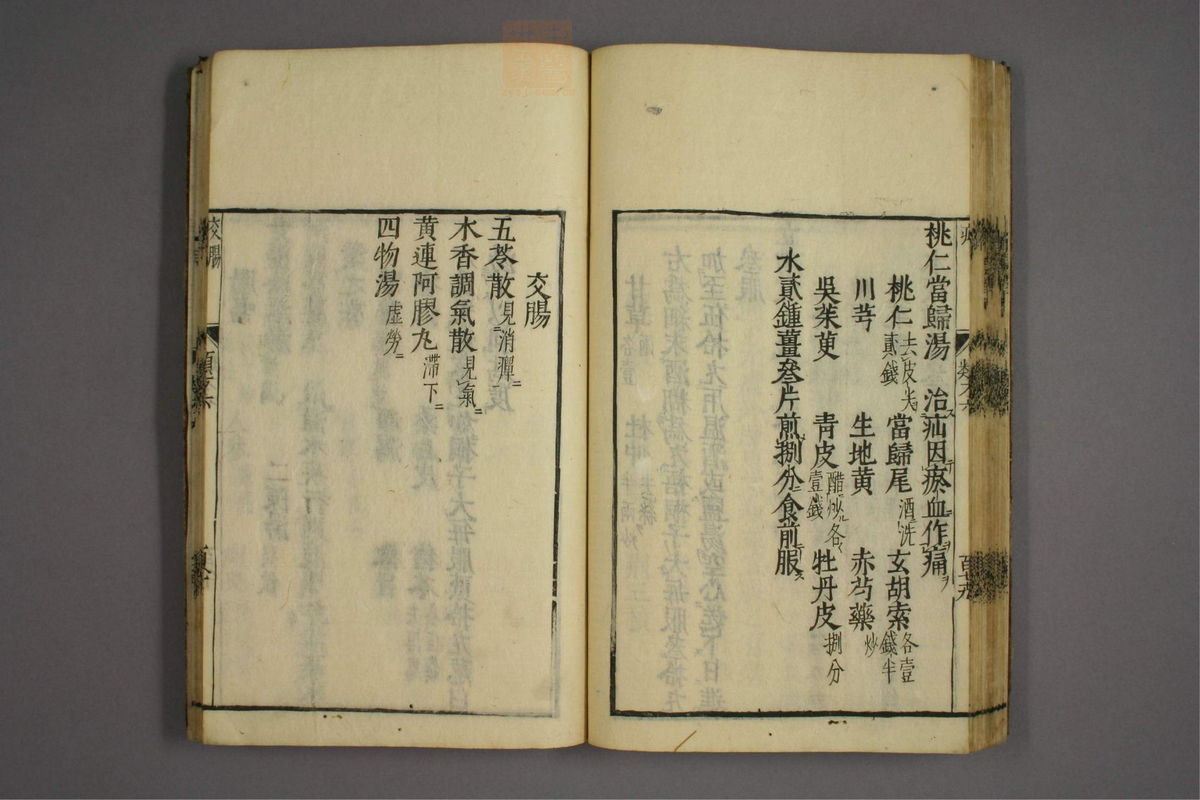 桃仁當歸湯 治疝因瘀血作痛
桃仁去皮尖貳錢 當歸尾酒洗 玄胡索各壹錢半
川芎 生地黄 赤芍藥炒
吳茱萸 青皮醋炒各壹錢 牡丹皮捌分
水貳鍾薑叁片煎捌分食前服
交腸
五苓散見消癉
木香調氣散見氣
黄連阿膠丸滯下
四物湯虛勞
交腸